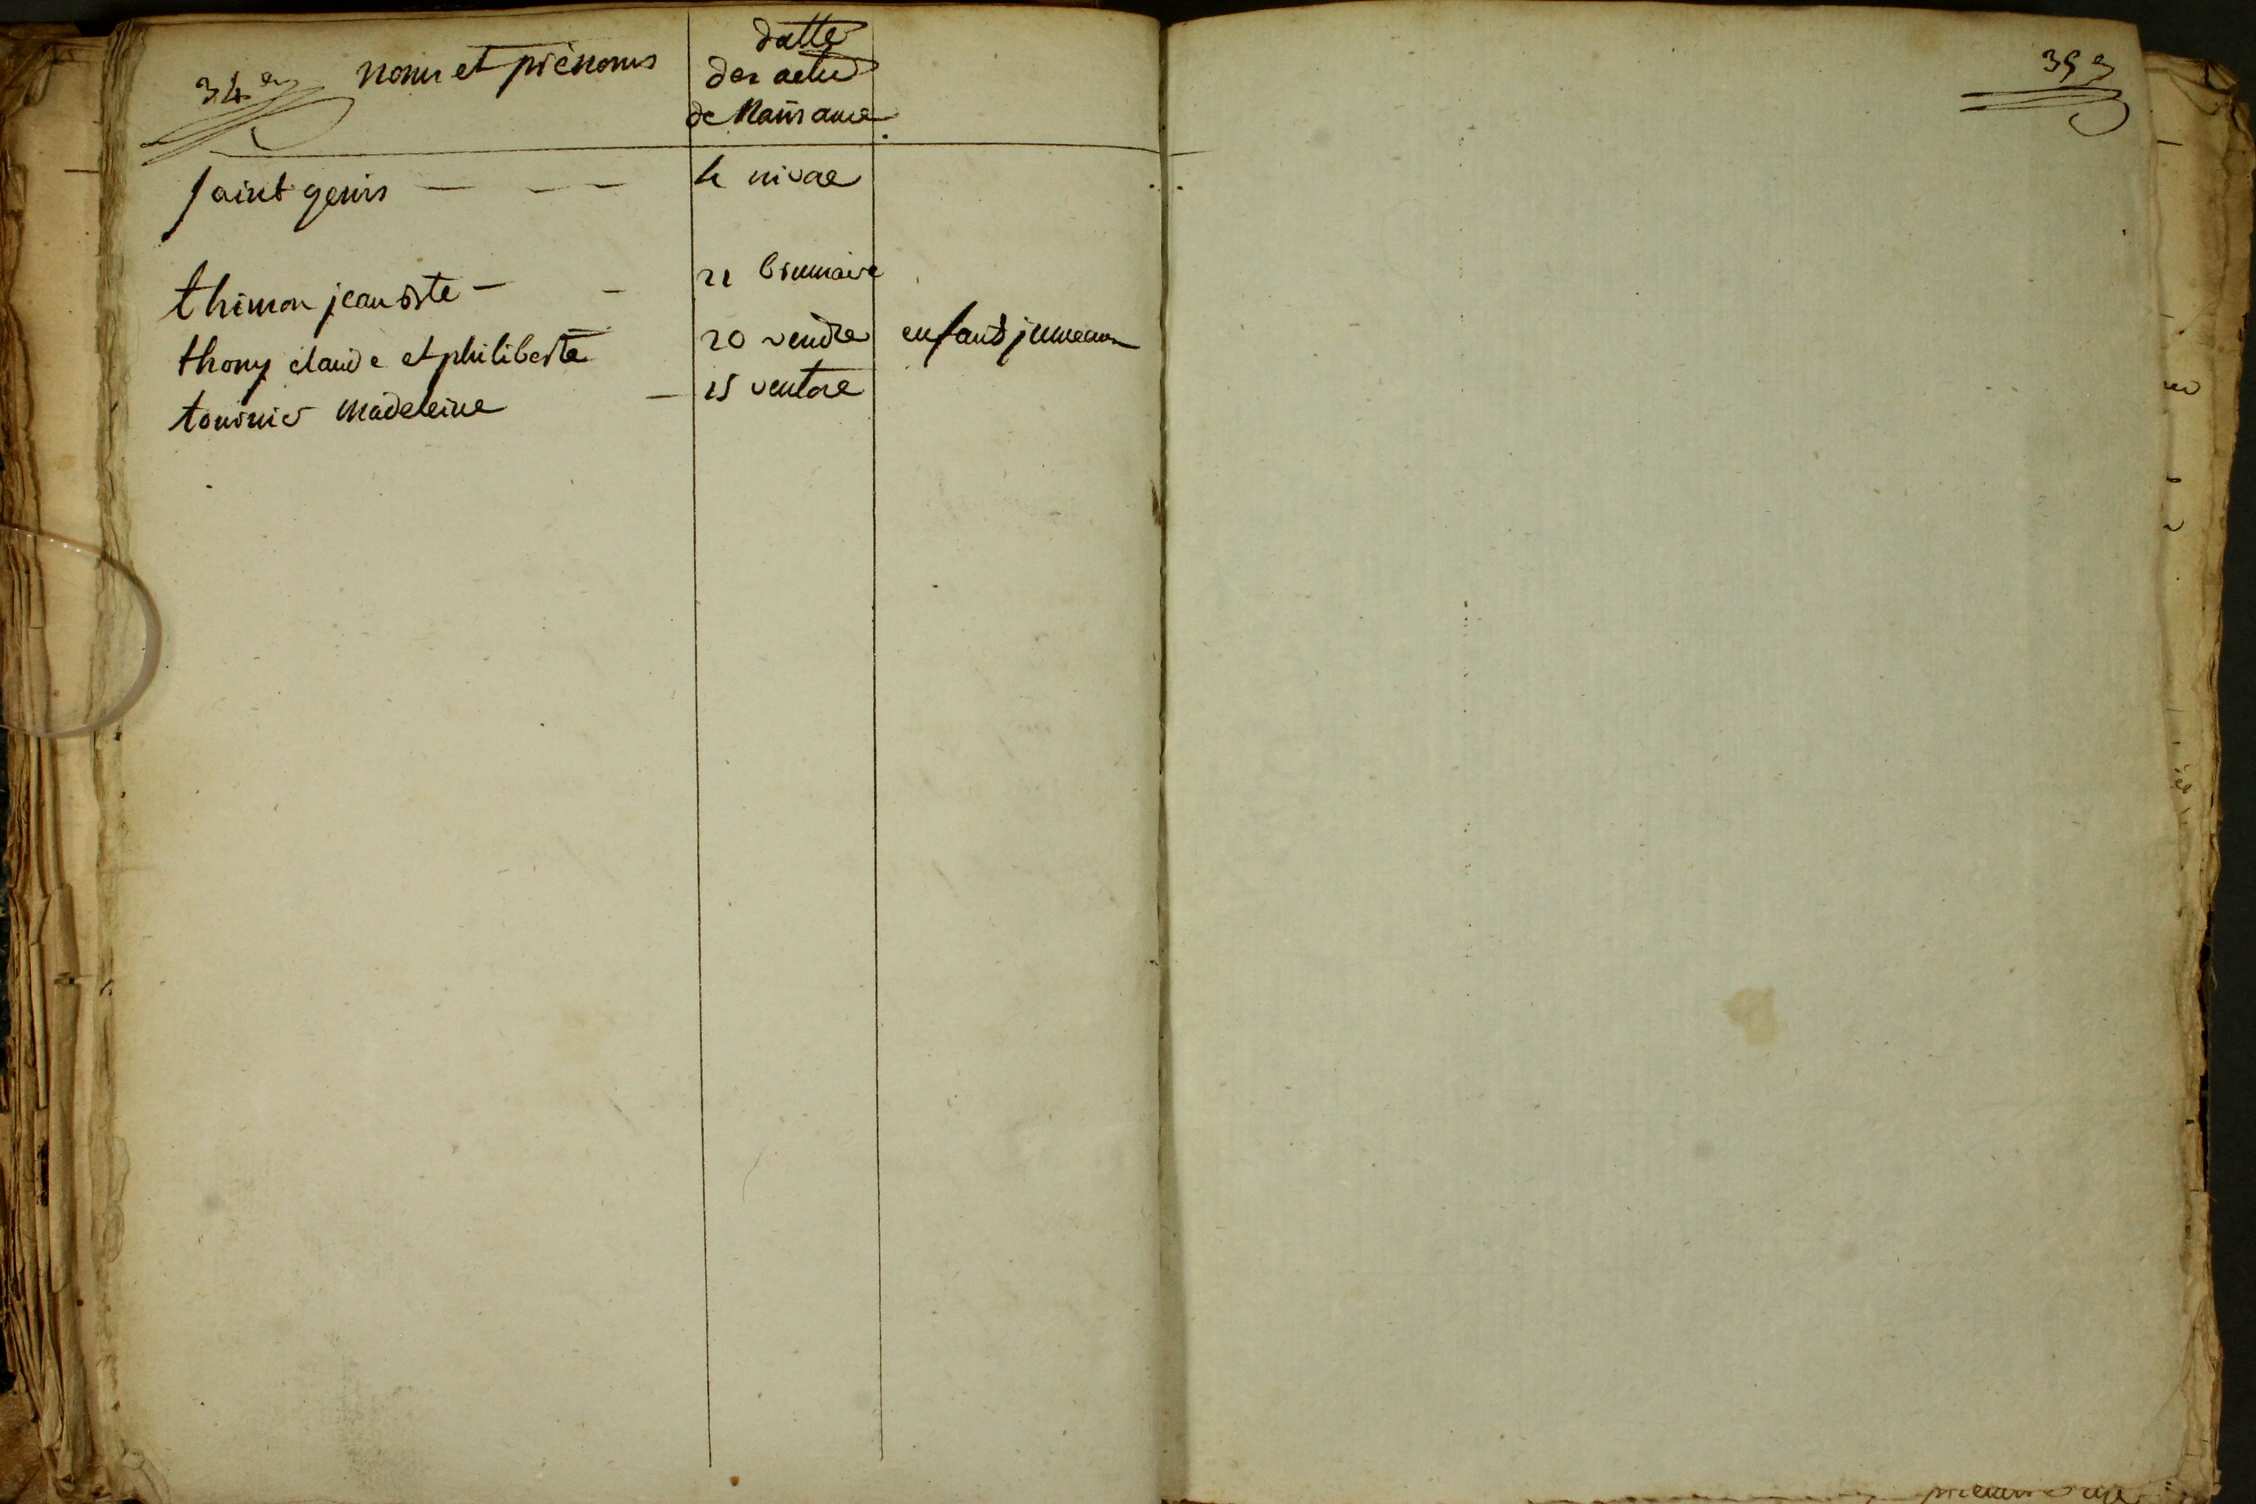 34e noms et prénoms
datte
des actes
de Naissance
saint genis — — — 4 nivôse
thimon jean Bte — — 21 brumaire
thony claude et philiberte 20 vendre enfants jumeaux
tournier madeleine — 15 ventose
35e